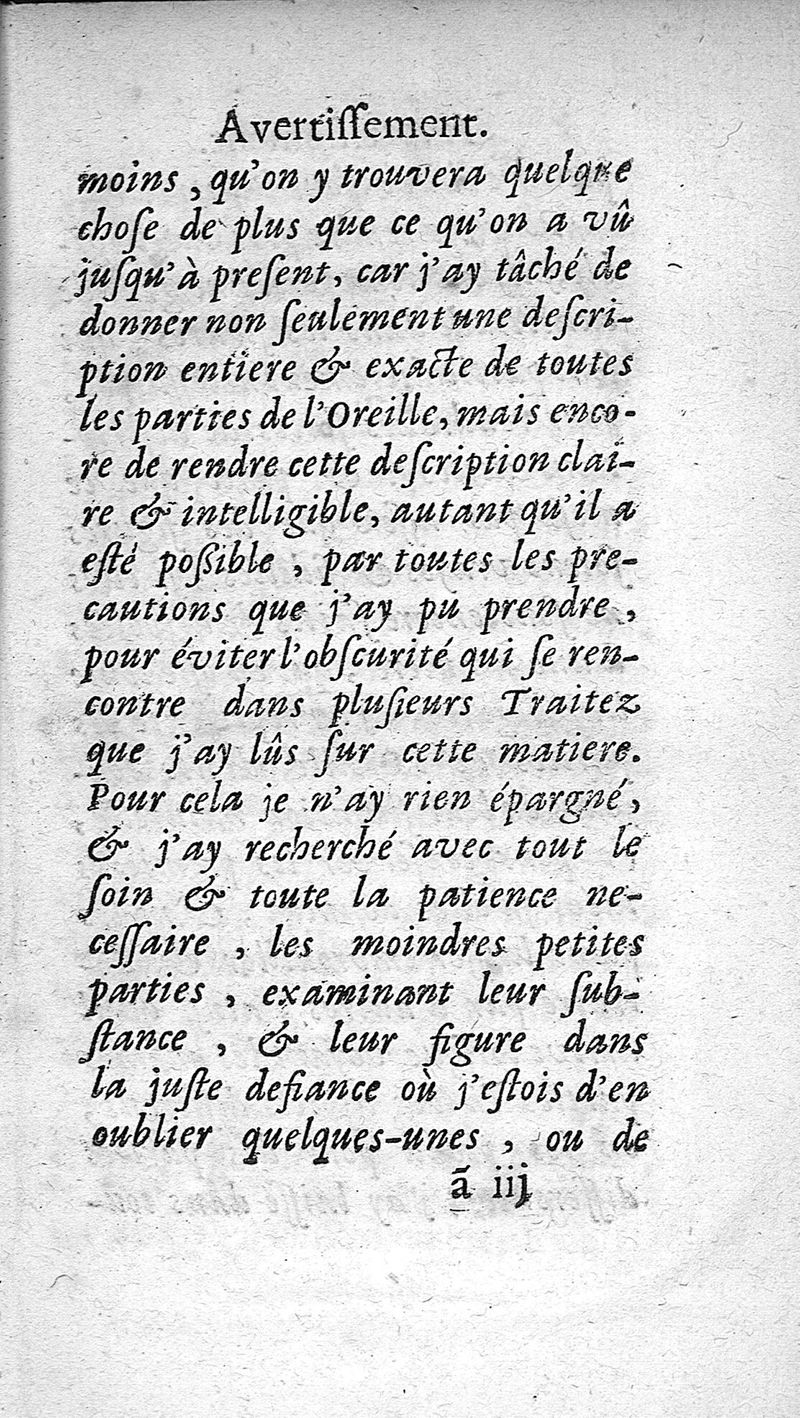 Avertiſſement.
moins, qu'on y trouvera quelque
choſe de plus que ce qu'on a vû
juſqu'à preſent, car j'ay tâché de
donner non ſeulement une deſcri-
ption entiere & exacte de toutes
les parties de l'Oreille, mais enco-
re de rendre cette deſcription clai-
re & intelligible, autant qu'il a
eſté poßible, par toutes les pre-
cautions que j'ay pu prendre,
pour éviter l'obſcurité qui ſe ren-
contre dans pluſieurs Traitez
que j'ay lûs ſur cette matiere.
Pour cela je n'ay rien épargné,
& j'ay recherché avec tout le
ſoin & toute la patience ne-
ceſſaire, les moindres petites
parties, examinant leur ſub-
ſtance, & leur figure dans
la juſte defiance où j'eſtois d'en
oublier quelques-unes, ou de
ã iij